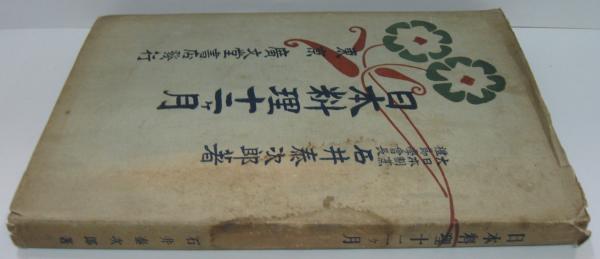 大日本割烹
學會長
石井泰次郎著
日本料理十二ヶ月
東京 廣文堂書店發行
日本料理十二ヶ月 石井泰次郎著